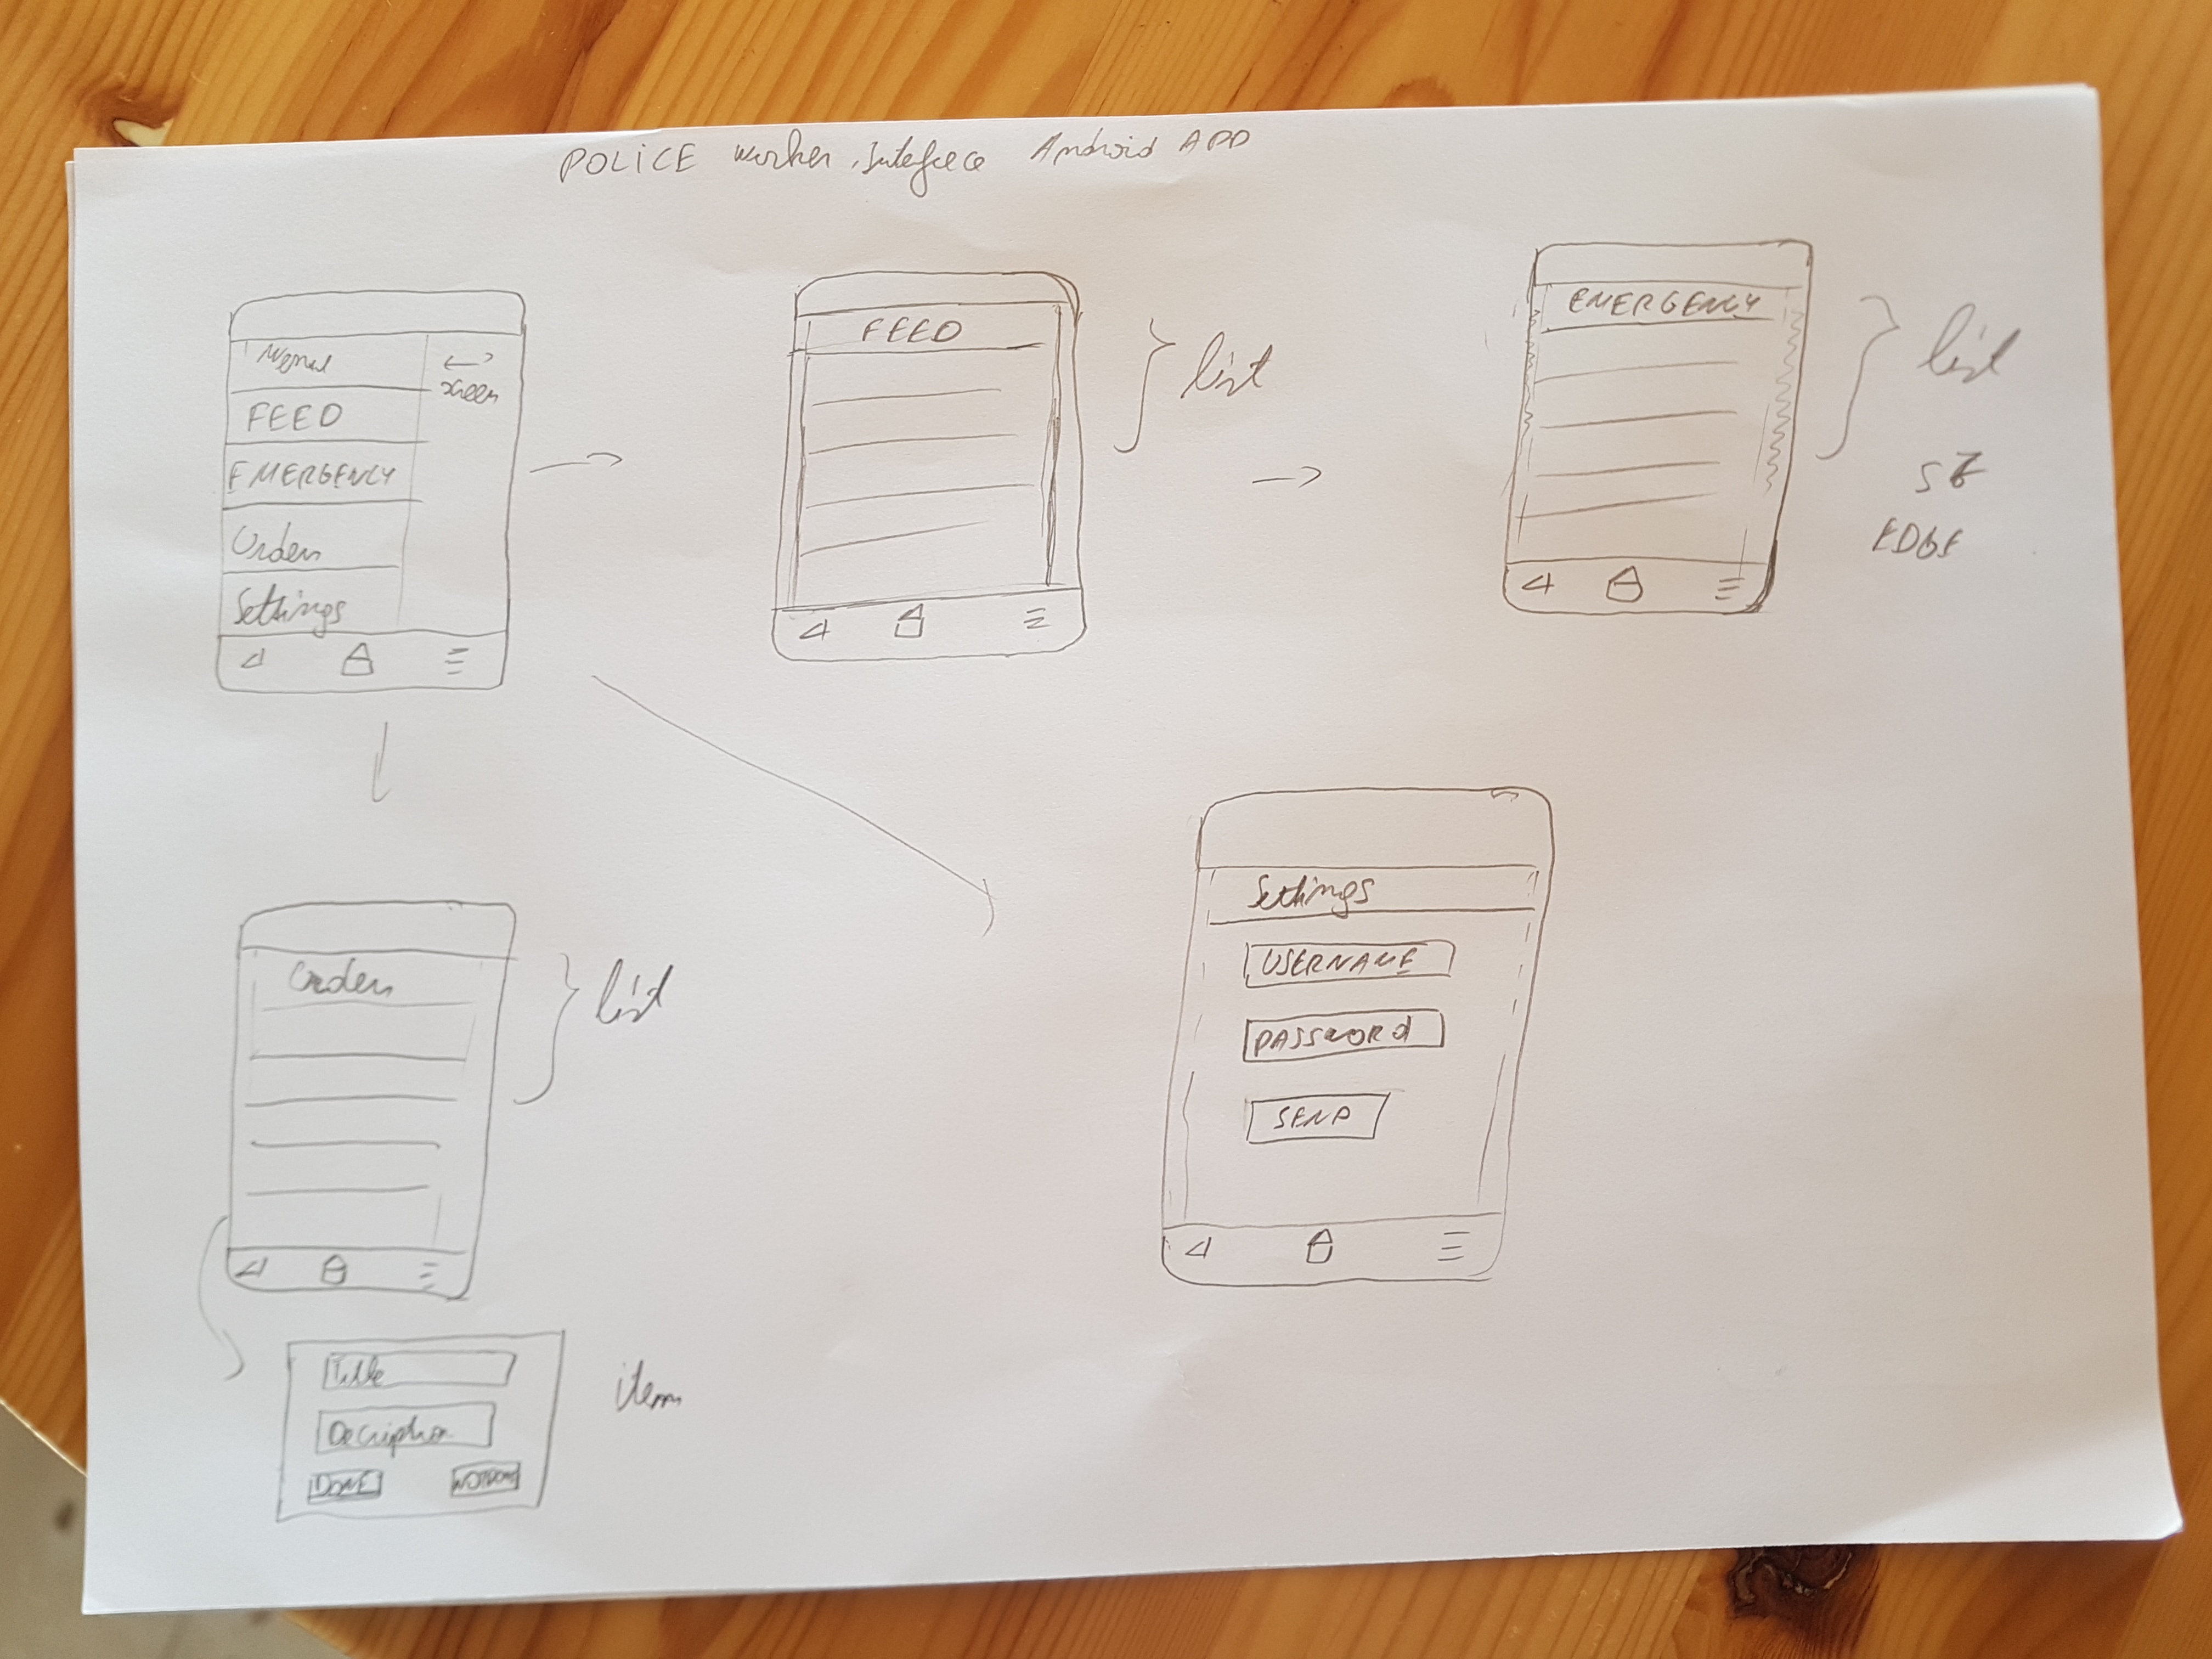 POLICE worker interface Android APP
Menu
← →
screen
FEED
EMERGENCY
Orders
Settings
FEED
list
EMERGENCY
list
EDGE
Orders
list
Title
Decription
DONE
item
Settings
USERNAME
PASSWORD
SEND